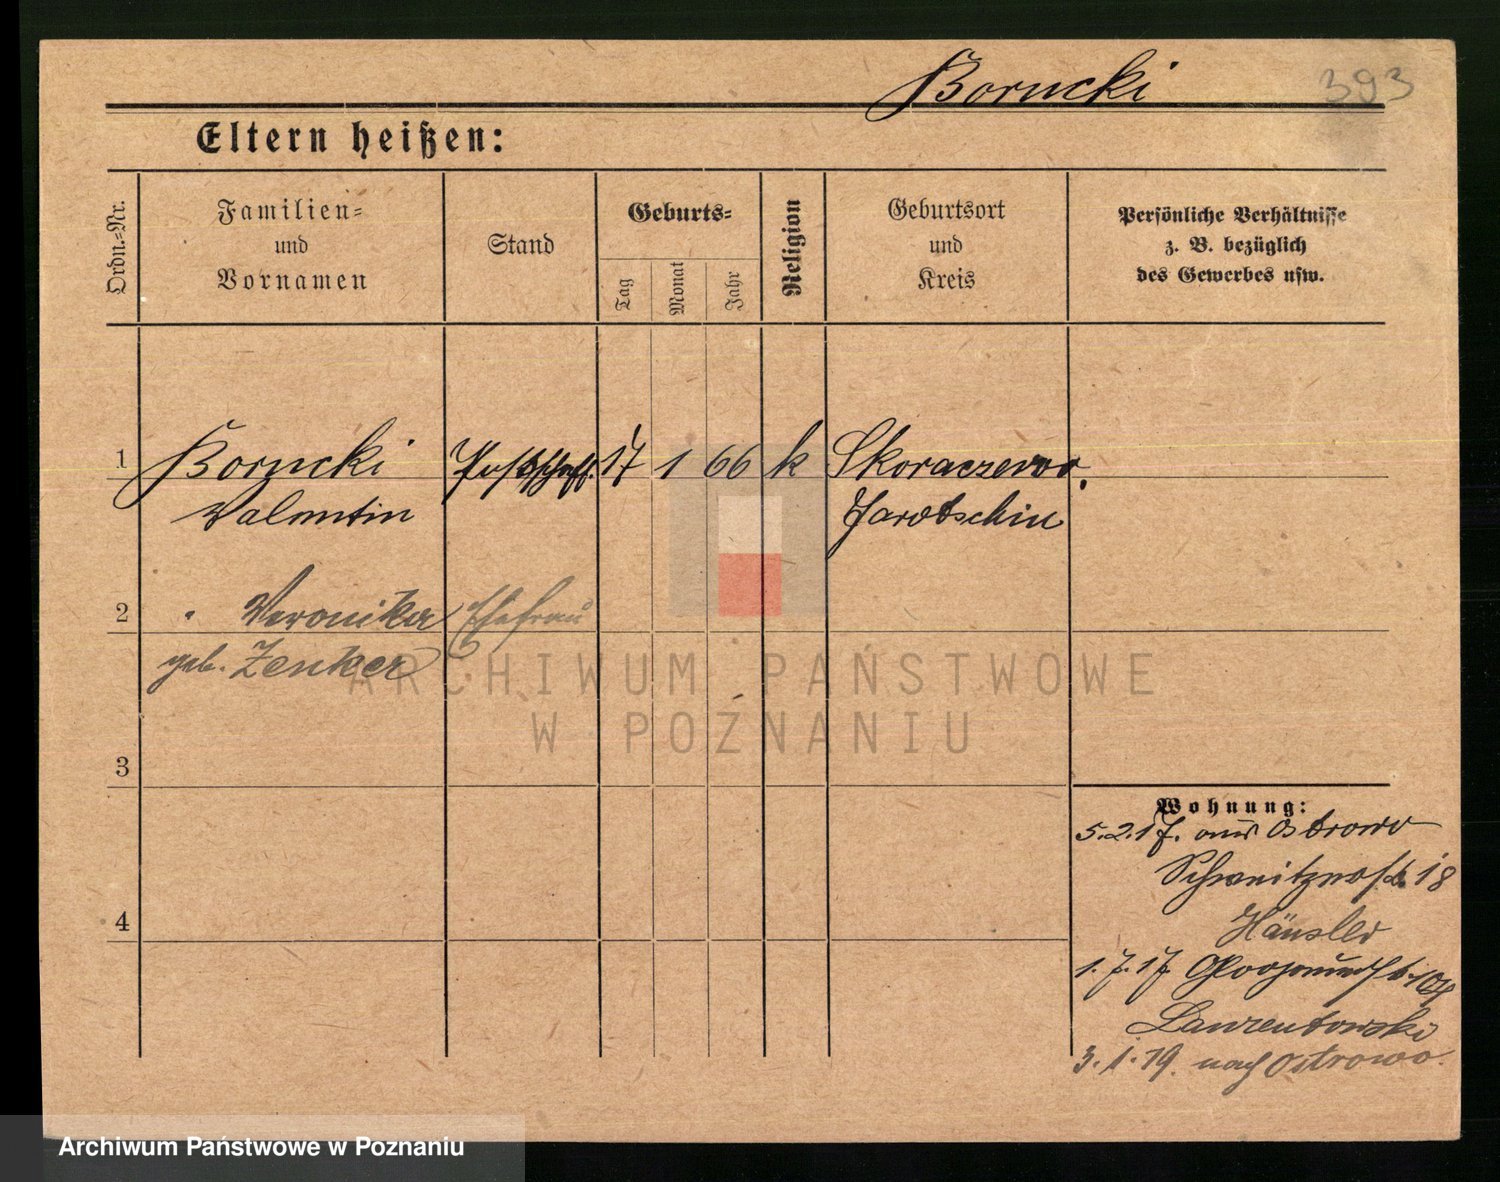 Borucki 393
Eltern heißen:
Ordn.=Nr.
Familien=
und
Vornamen
Stand
Geburts=
Tag
Monat
Jahr
Religion
Geburtsort
und
Kreis
Persönliche Verhältnisse
z. B. bezüglich
des Gewerbes usw.
1 Borucki Postschaff. 17 1 66 k Skoraczewo,
Valentin Jarotschin
2 " Veronika Ehefrau
geb. Zenker
3
4
Wohnung:
5.2.17. aus Ostrowo
18
Häusler
1.7.17
Laurentowski
3.1.19. nach Ostrowo.
ARCHIWUM PAŃSTWOWE
W POZNANIU
Archiwum Państwowe w Poznaniu